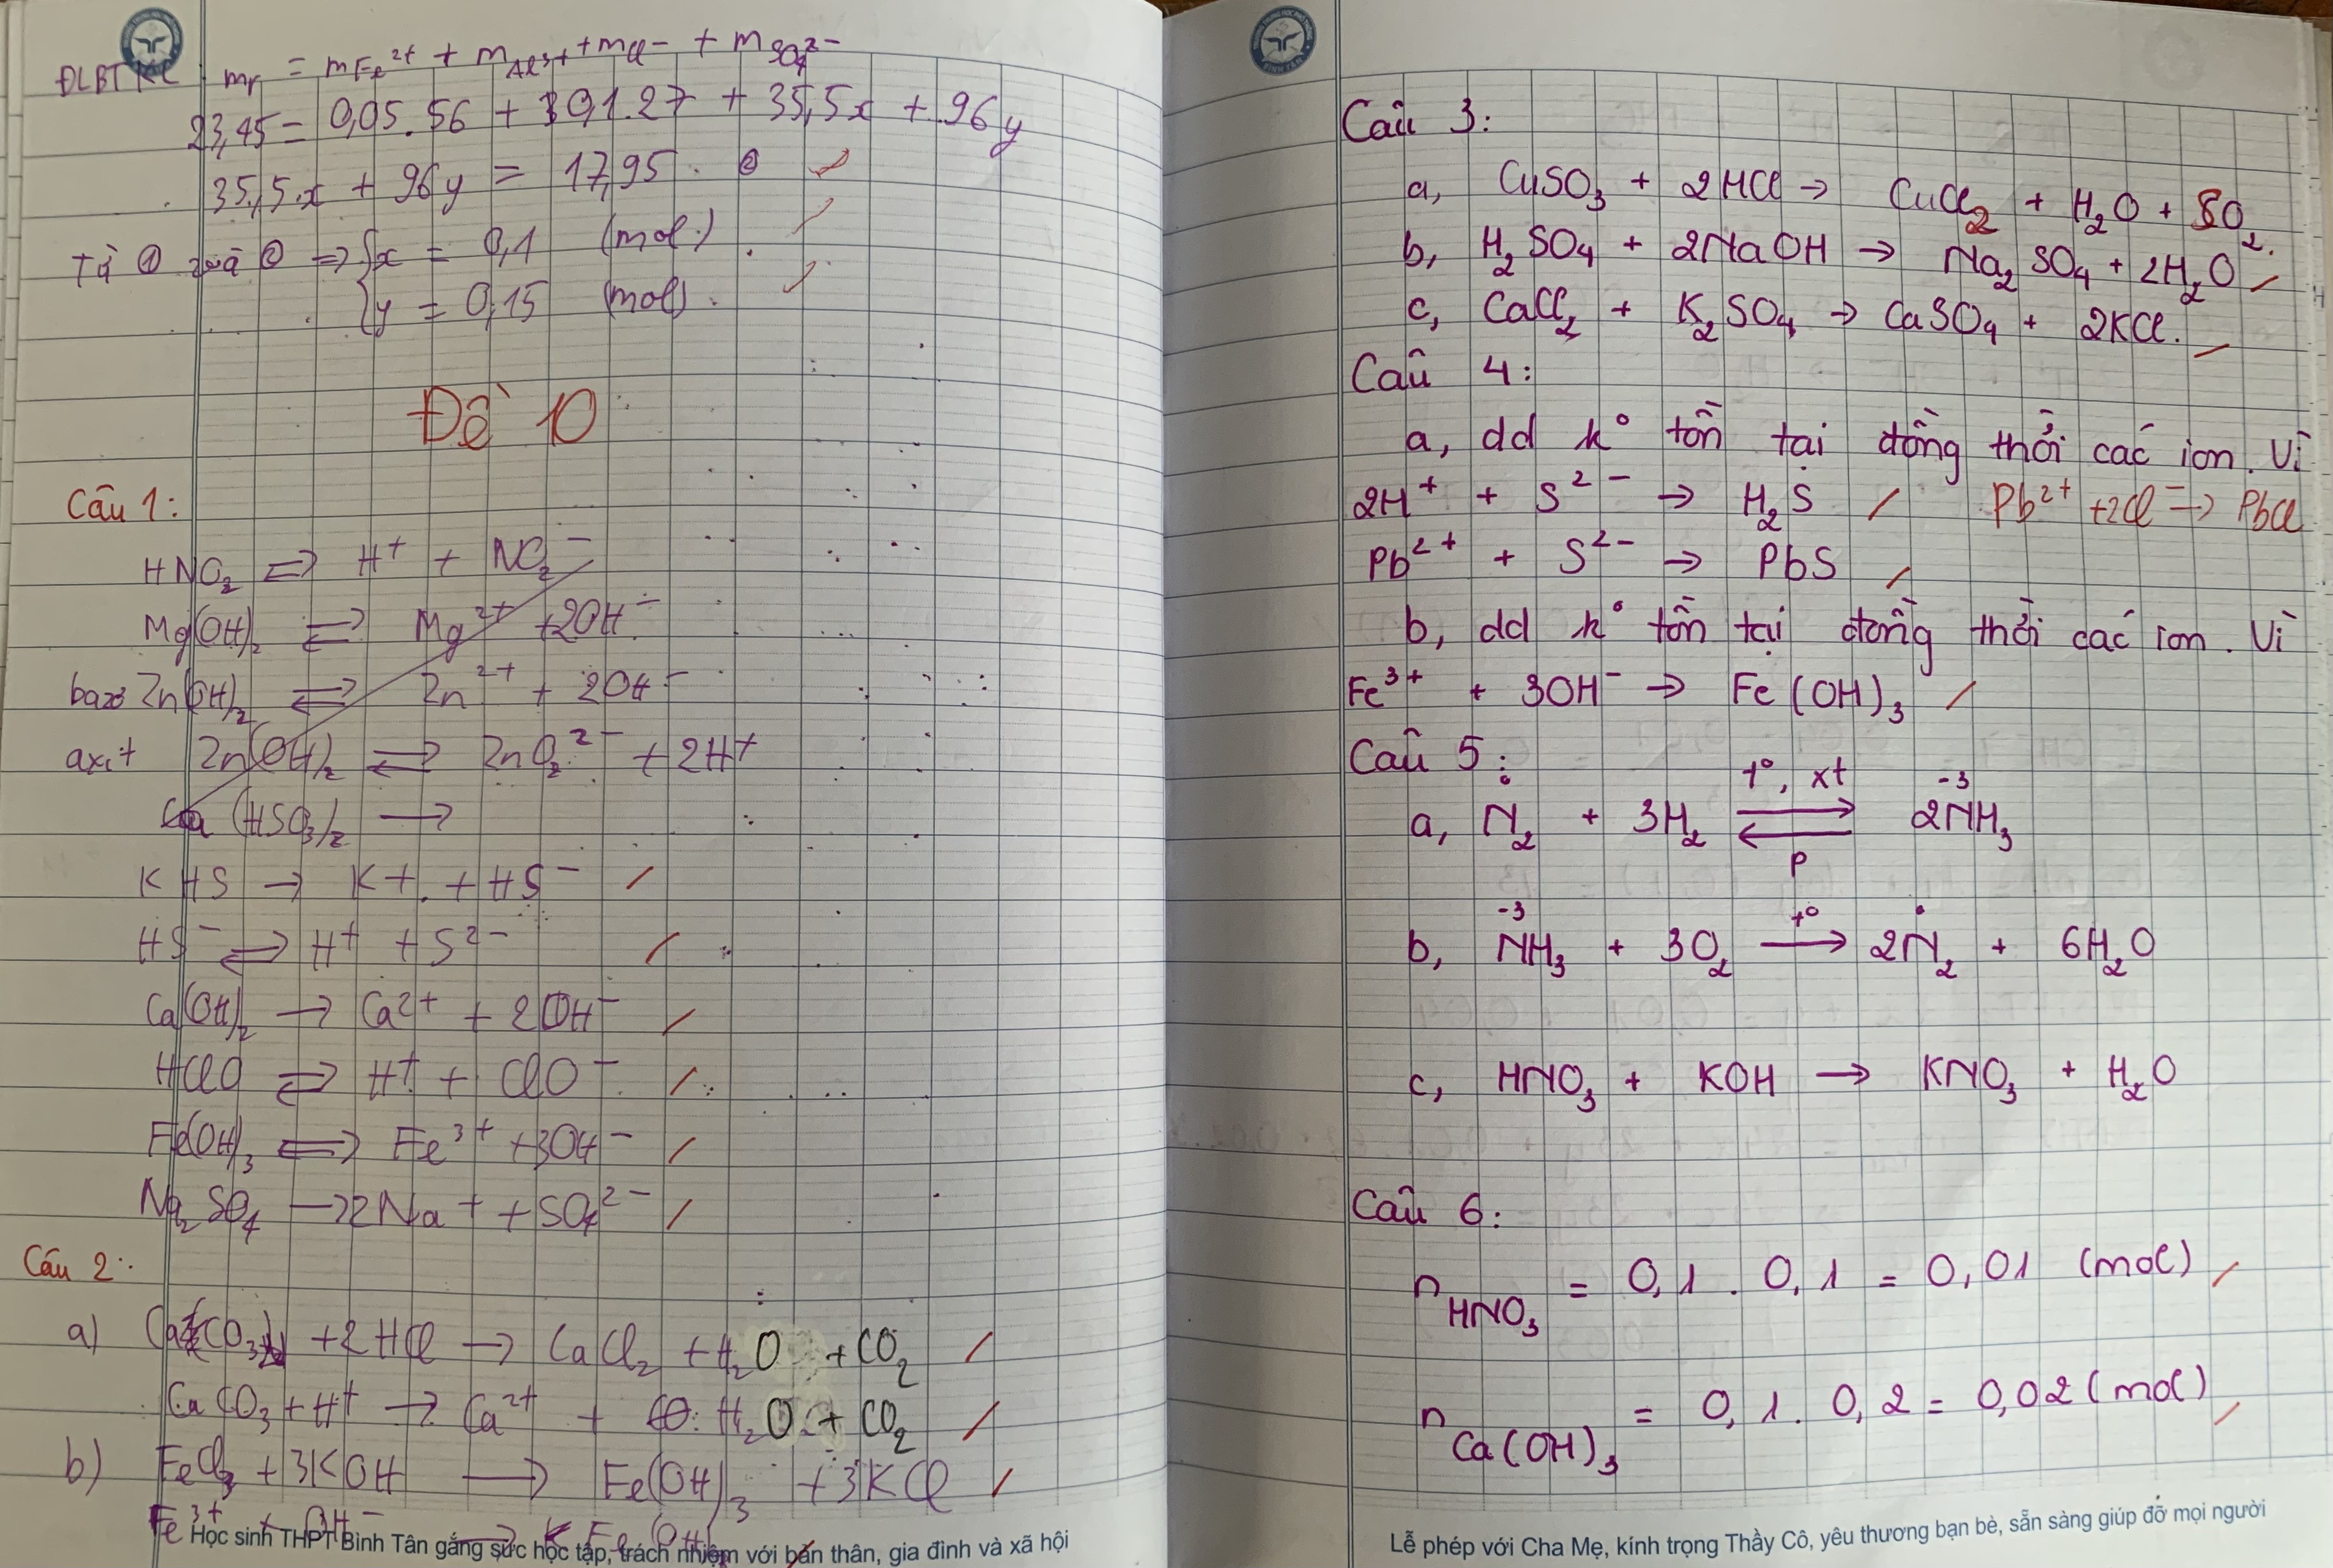 ĐLBTKL mr = mFe²⁺ + mAl³⁺ + mCl⁻ + mSO₄²⁻
23,45 = 0,05.56 + 0,1.27 + 35,5x + 96y
35,5.x + 96y = 17,95. ②
Từ ① và ② ⇒ {x = 0,1 (mol)
{y = 0,15 (mol).
Đề 10
Câu 1:
HNO₂ ⇌ H⁺ + NO₂⁻
Mg(OH)₂ ⇌ Mg²⁺ + 2OH⁻
bazơ Zn(OH)₂ ⇌ Zn²⁺ + 2OH⁻
axit Zn(OH)₂ ⇌ ZnO₂²⁻ + 2H⁺
Ca(HSO₃)₂ →
KHS → K⁺ + HS⁻
HS⁻ ⇌ H⁺ + S²⁻
Ca(OH)₂ → Ca²⁺ + 2OH⁻
HClO ⇌ H⁺ + ClO⁻
Fe(OH)₃ ⇌ Fe³⁺ + 3OH⁻
Na₂SO₄ → 2Na⁺ + SO₄²⁻
Câu 2:
a) CaCO₃ + 2HCl → CaCl₂ + H₂O + CO₂
CaCO₃ + H⁺ → Ca²⁺ + H₂O + CO₂
b) FeCl₃ + 3KOH → Fe(OH)₃ + 3KCl
Fe³⁺ + OH⁻ → Fe(OH)
Học sinh THPT Bình Tân gắng sức học tập, trách nhiệm với bản thân, gia đình và xã hội
Câu 3:
a, CuSO₃ + 2HCl → CuCl₂ + H₂O + SO₂.
b, H₂SO₄ + 2NaOH → Na₂SO₄ + 2H₂O
c, CaCl₂ + K₂SO₄ → CaSO₄ + 2KCl.
Câu 4:
a, dd k° tồn tại đồng thời các ion. Vì
2H⁺ + S²⁻ → H₂S Pb²⁺ + 2Cl⁻ → PbCl
Pb²⁺ + S²⁻ → PbS
b, dd k° tồn tại đồng thời các ion. Vì
Fe³⁺ + 3OH⁻ → Fe(OH)₃
Câu 5:
t°, xt -3
a, N₂ + 3H₂ ⇌ 2NH₃
P
-3 t°
b, NH₃ + 3O₂ → 2N₂ + 6H₂O
c, HNO₃ + KOH → KNO₃ + H₂O
Câu 6:
nHNO₃ = 0,1 . 0,1 = 0,01 (mol)
nCa(OH)₃ = 0,1 . 0,2 = 0,02 (mol)
Lễ phép với Cha Mẹ, kính trọng Thầy Cô, yêu thương bạn bè, sẵn sàng giúp đỡ mọi người